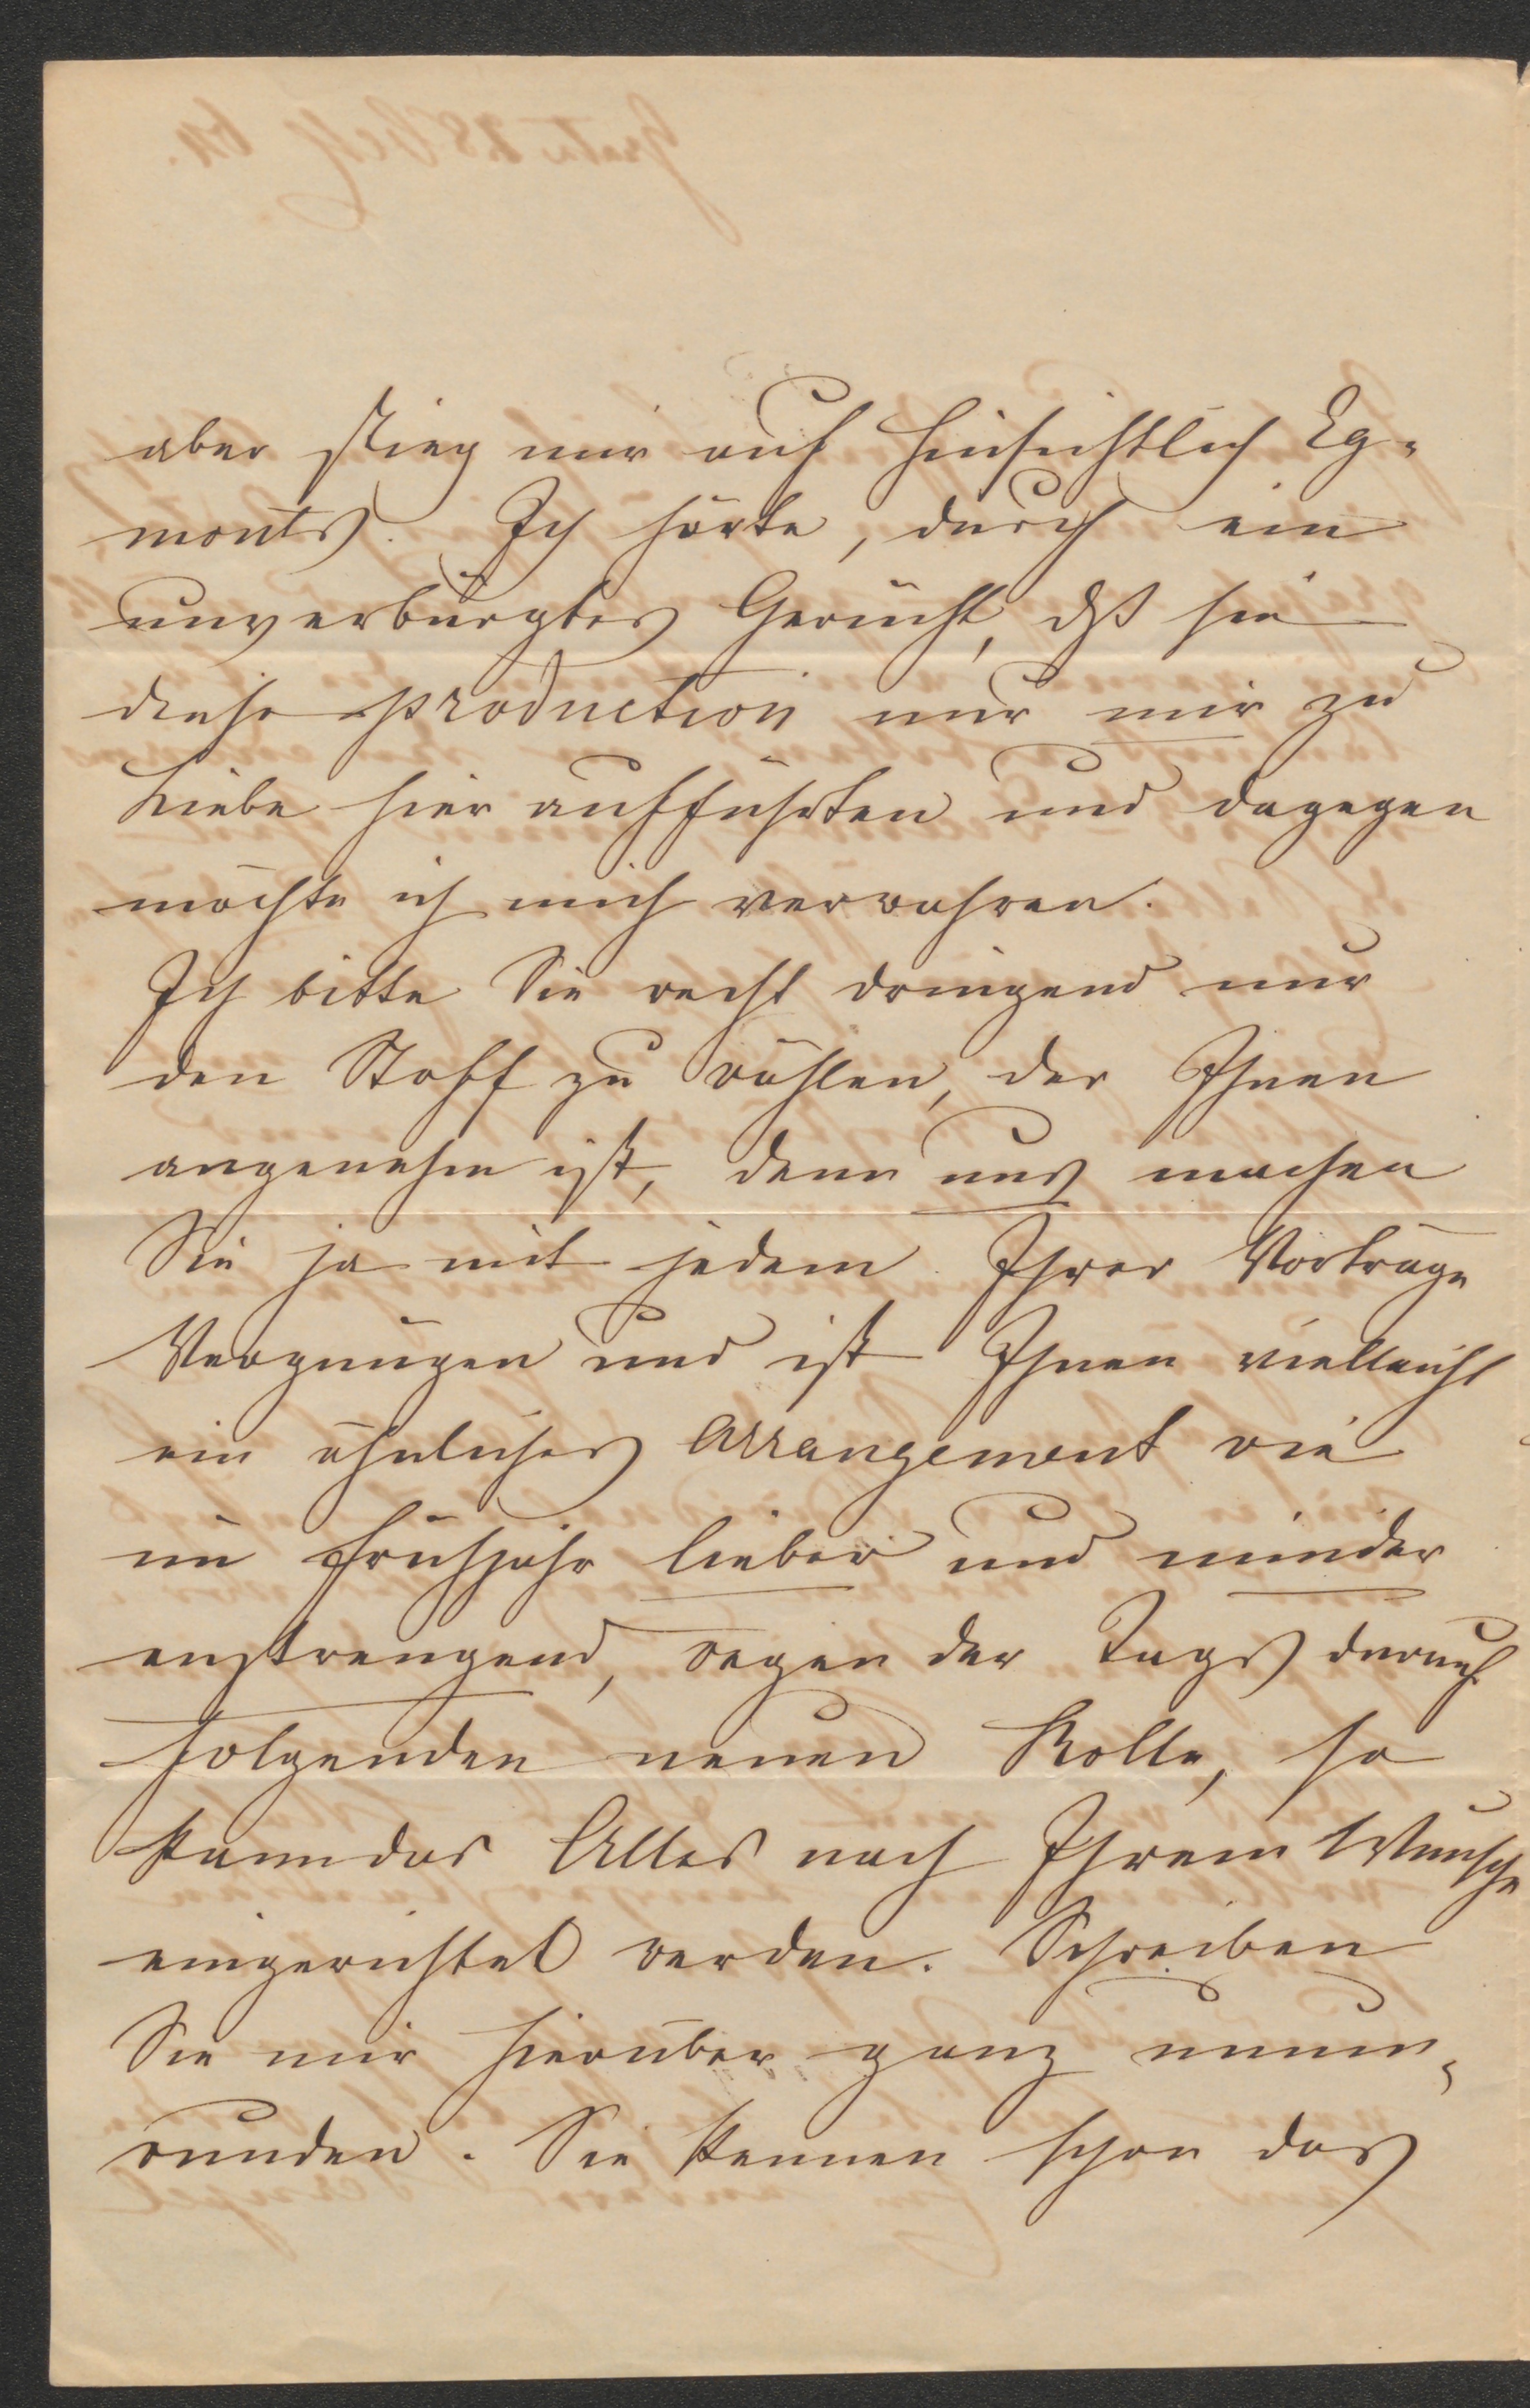 aber stieg mir auf hinsichtlich Eg=
monts. Ich hörte, durch ein
unverbürgtes Gerücht, dß sie
diese production nur mir zu
Liebe hier aufführten und dagegen
möchte ich mich verwahren.
Ich bitte Sie recht dringend nur
den Stoff zu wählen, der Ihnen
angenehm ist, denn uns machen
Sie ja mit jedem Ihrer Vorträge
Vergnügen und ist Ihnen vielleicht
ein ähnliches Arrangement wie
im Frühjahr lieber und minder
anstrengend, wegen der Tags darauf
folgenden neuen Rolle, so
kann das Alles nach Ihrem Wunsche
eingerichtet werden. Schreiben
Sie mir hierüber ganz unum=
wunden. Sie kennen schon das